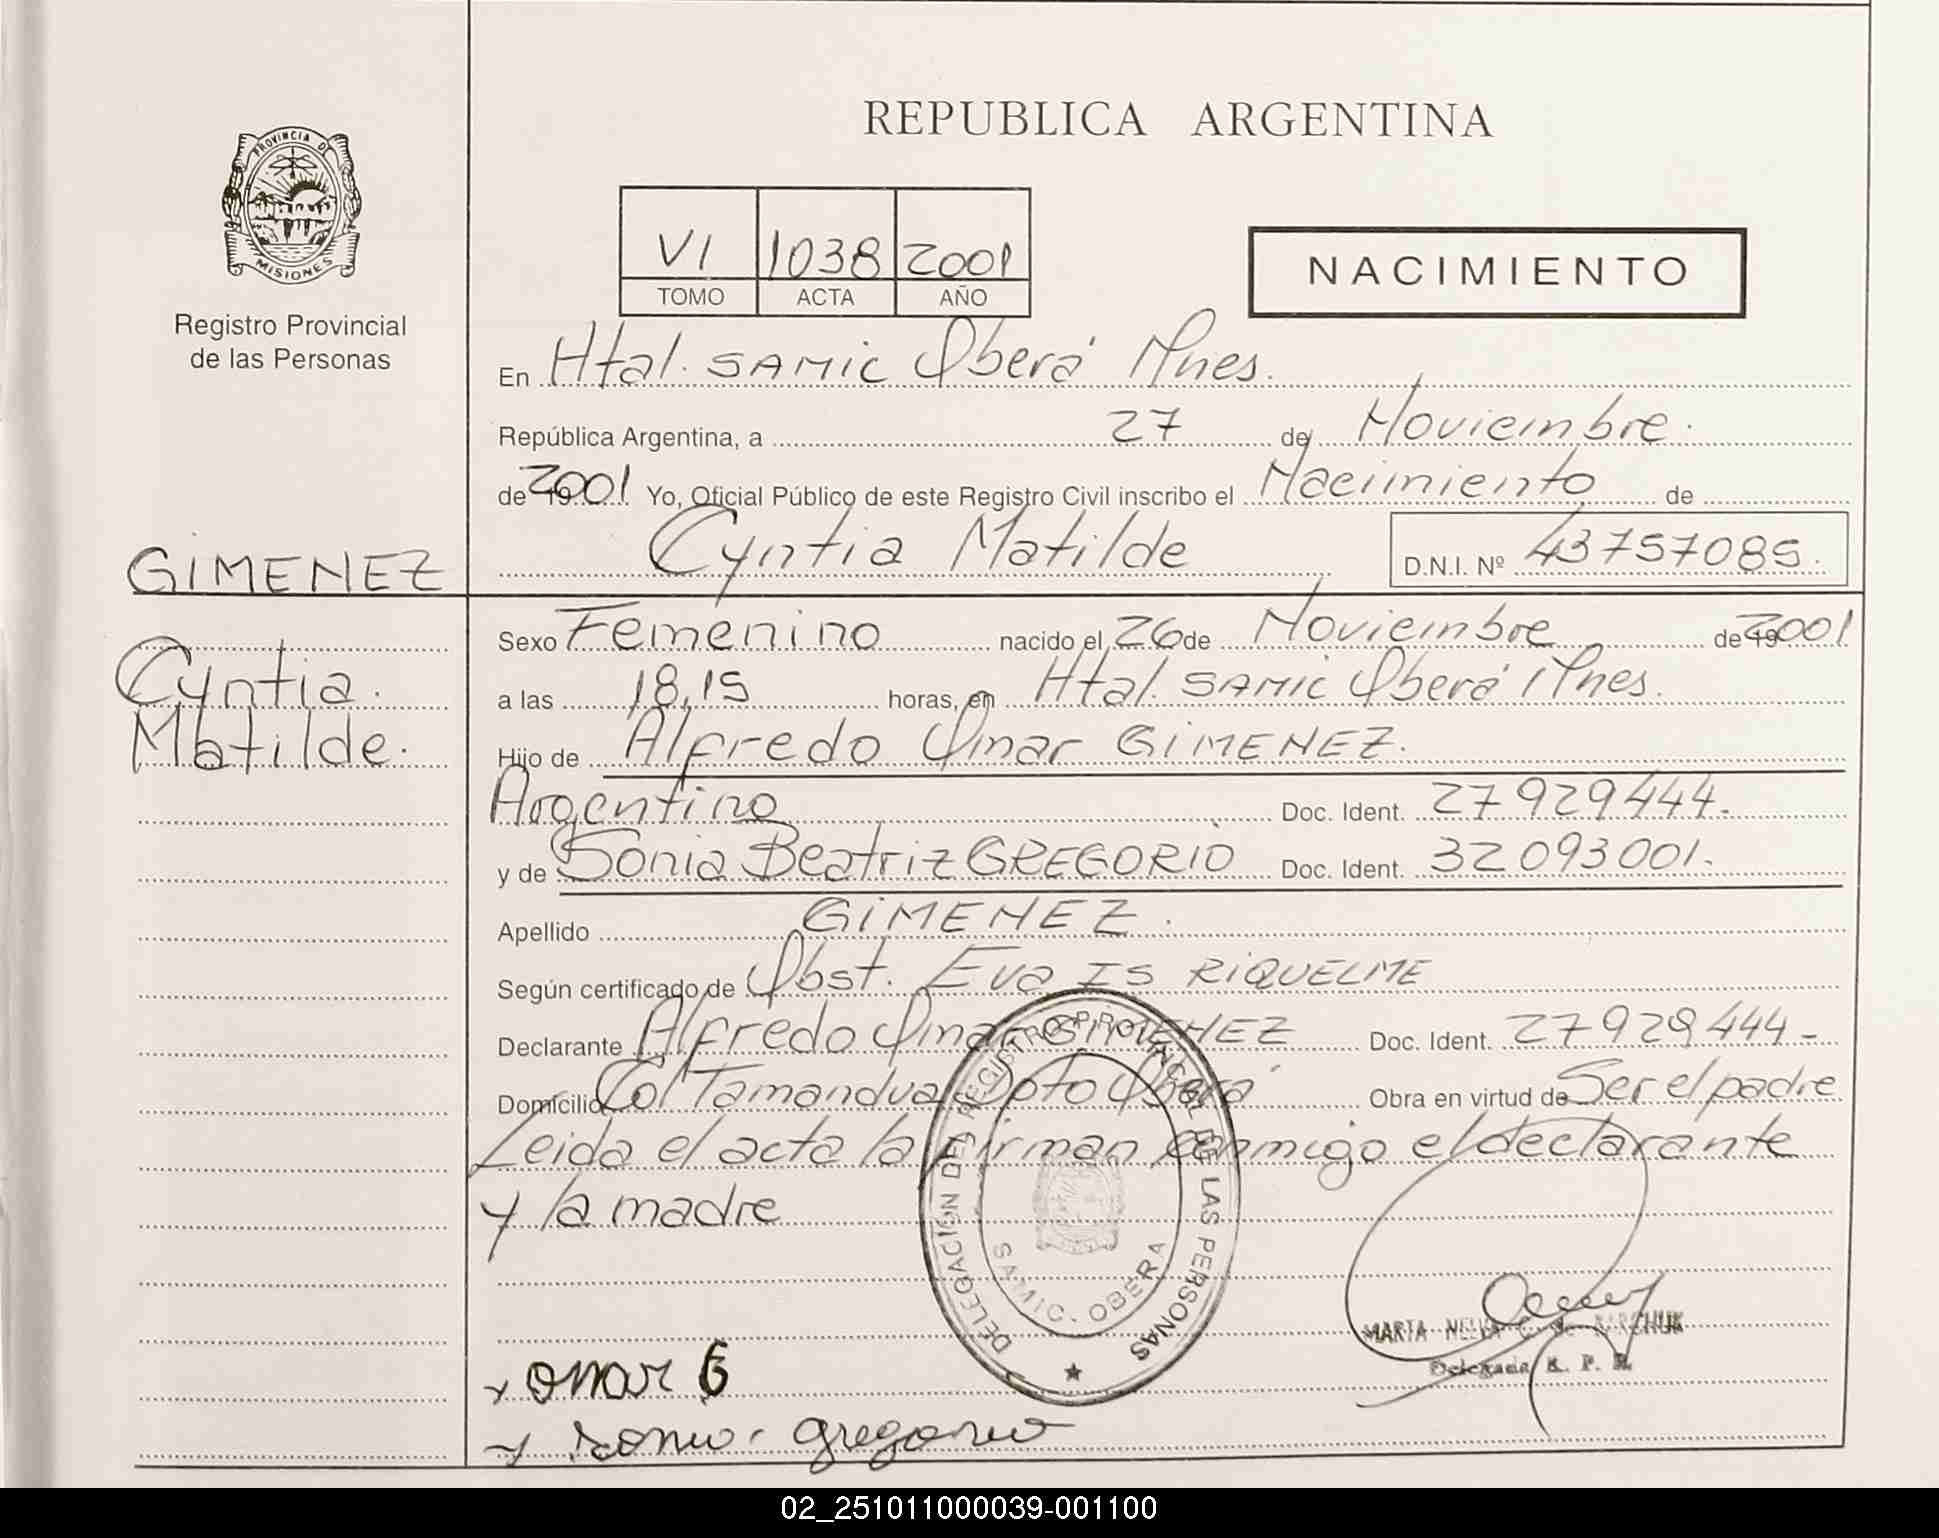 REPUBLICA ARGENTINA
PROVINCIA DE MISIONES
Registro Provincial
de las Personas
VI 1038 2001
TOMO ACTA AÑO
NACIMIENTO
En Htal. SAMIC Oberá Mnes.
República Argentina, a 27 de Noviembre.
de 2001 Yo, Oficial Público de este Registro Civil inscribo el Nacimiento de
Cyntia Matilde D.N.I. Nº 43757085.
GIMENEZ
Cyntia.
Matilde.
Sexo Femenino nacido el 26 de Noviembre de 19 2001
a las 18,15 horas, en Htal. SAMIC Oberá Mnes.
Hijo de Alfredo Omar GIMENEZ.
Argentino Doc. Ident. 27929444.
y de Sonia Beatriz GREGORIO Doc. Ident. 32093001.
Apellido GIMENEZ.
Según certificado de Obst. Eva IS RIQUELME
Declarante Alfredo Omar GIMENEZ Doc. Ident. 27929444-
Domicilio Col Tamandua Dpto Oberá Obra en virtud de Ser el padre
Leida el acta la firman conmigo el declarante
y la madre
DELEGACION DEL REGISTRO PROVINCIAL DE LAS PERSONAS
SAMIC - OBERA
MARTA
Delegada R. P. P.
omar G
gregorio
02_251011000039-001100